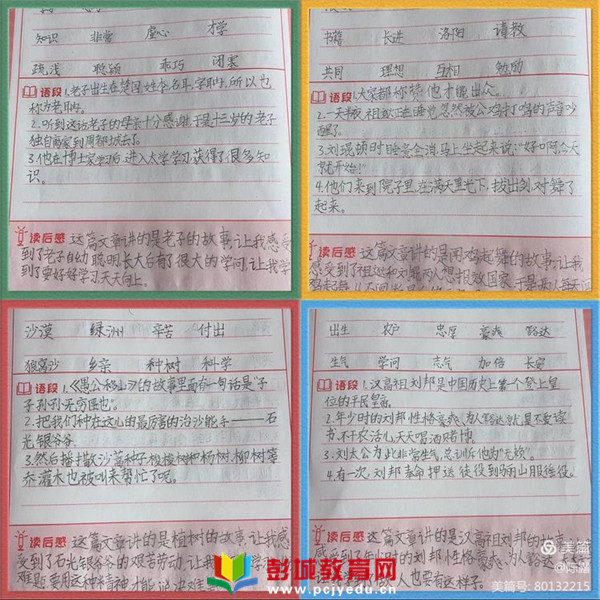 知识 非常 虚心 才学
疏浅 聪颖 乖巧 闭塞
语段 1.老子出生在楚国,姓李名耳,字聃,所以也
称为老聃。
2.听到这话老子的母亲十分感激,于是十三岁的老子
独自离家到周都城去了。
3.他在博士家学习后,进入太学学习获得了很多知
识。
读后感 这篇文章讲的是老子的故事,让我感受
到了老子自幼聪明长大后有了很大的学问,让我学
到了要好好学习,天天向上。
书籍 长进 洛阳 请教
共同 理想 互相 勉励
语段 1.大家都称赞他才能出众。
2.一天半夜,祖逖正在睡觉忽然被公鸡打鸣的声音吵
醒了。
3.刘琨顿时睡意全消,马上坐起来说:“好!叫何今天
就开始!”
4.他们来到院子里,在满天星光下,拔出剑,对舞了
起来。
读后感 这篇文章讲的是闻鸡起舞的故事,让我
感受到了祖逖和刘琨两人想报效国家,于是两人每天
沙漠 绿洲 辛苦 付出
狼窝沙 乡亲 种树 科学
语段 1.《愚公移山》的故事里面有一句话是“子
子孙孙无穷匮也”。
2.把我们种在这儿的最厉害的治沙能手——石
光银爷爷。
3.然后播撒沙蒿种子,接着树种杨树、柳树等
乔灌木也被叫来帮忙了呢。
读后感 这篇文章讲的是植树的故事,让我感
受到了石光银爷爷的艰苦劳动,让我
难题,要用这种精神,才能
出生 农户 忠厚 豪爽 豁达
生气 学问 志气 加倍 长安
语段 1.汉高祖刘邦是中国历史上第一个登上皇
位的平民皇帝。
2.年少时的刘邦性格豪爽,为人豁达,就是不爱读
书,不干农活儿,天天喝酒赌博。
3.刘太公为此非常生气,总训斥他为“无赖”。
4.有一次,刘邦奉命押送徒役到骊山服徭役。
读后感 这篇文章讲的是汉高祖刘邦的故事,
感受到了年少时的刘邦性格豪爽,为人豁达
人也要有这样子。
彭城教育网
www.pcjyedu.cn
美篇
美篇号: 80132215